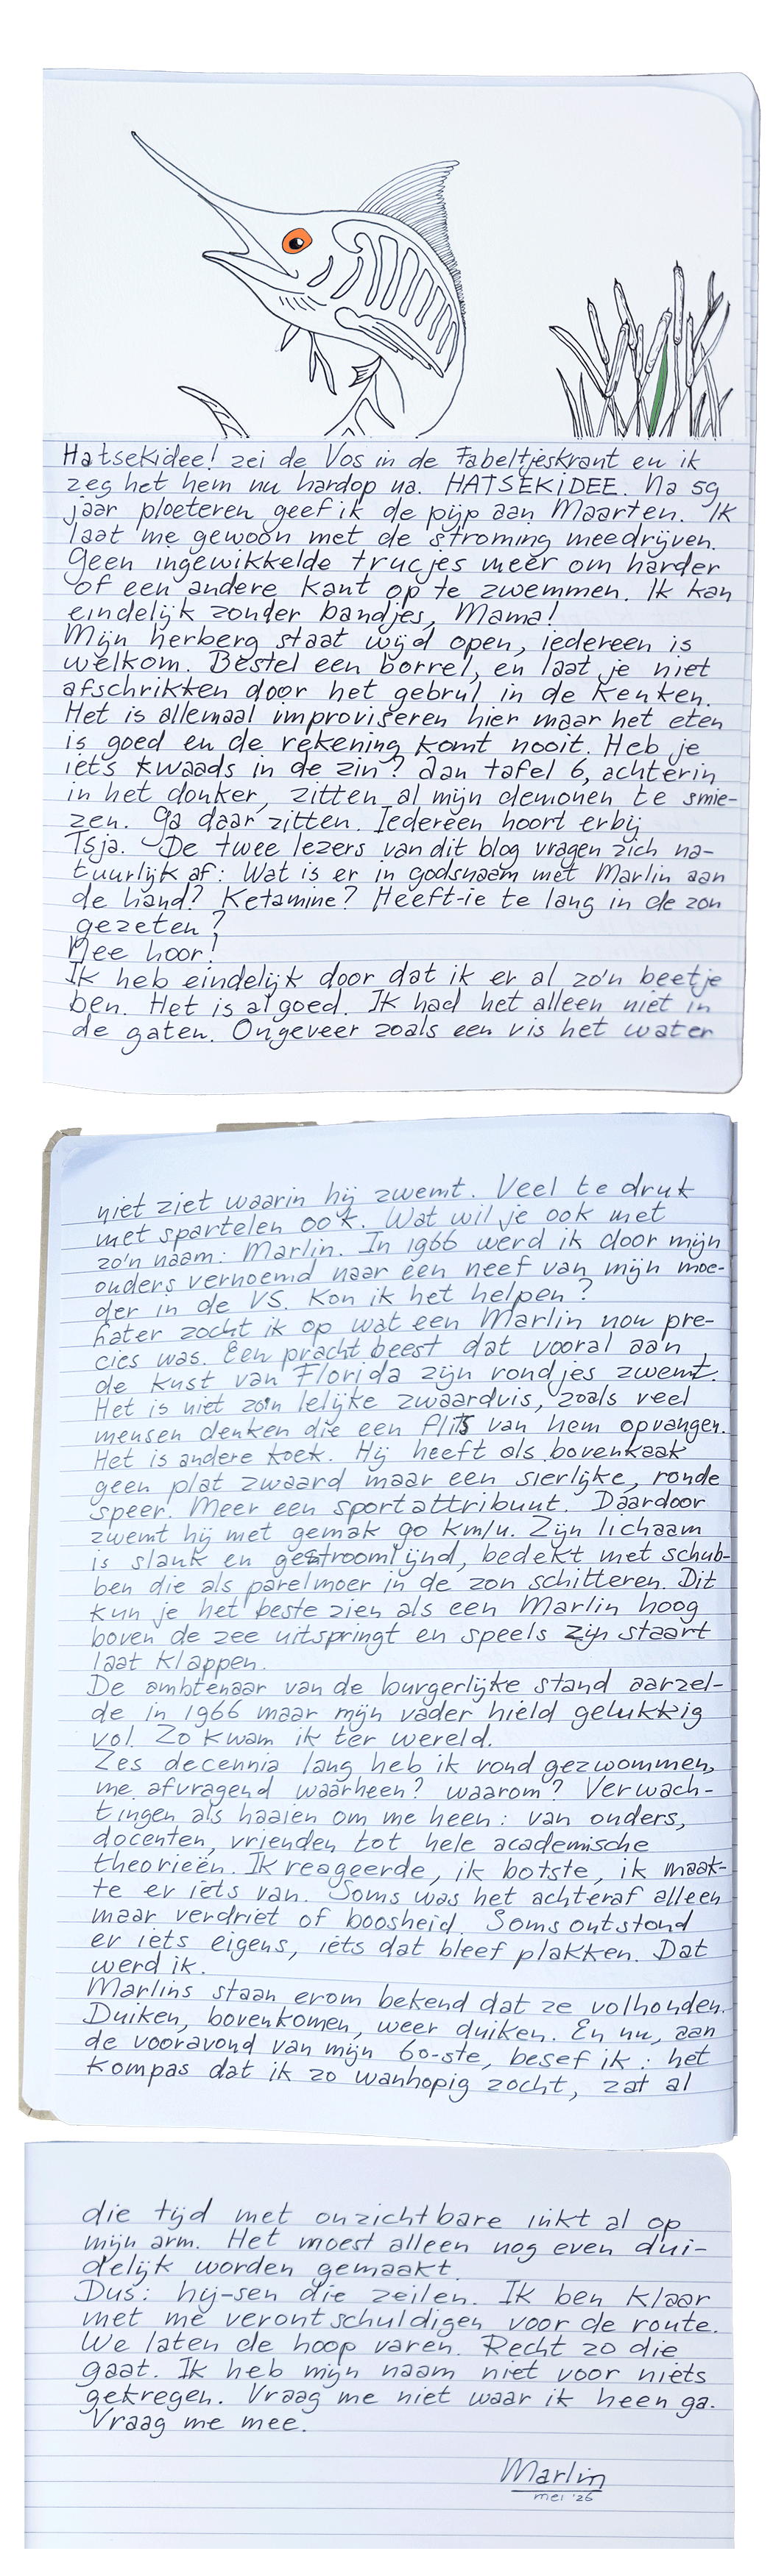 Hatsekidee! zei de Vos in de Fabeltjeskrant en ik
zeg het hem nu hardop na. HATSEKIDEE. Na 59
jaar ploeteren geef ik de pijp aan Maarten. Ik
laat me gewoon met de stroming meedrijven.
Geen ingewikkelde trucjes meer om harder
of een andere kant op te zwemmen. Ik kan
eindelijk zonder bandjes, Mama!
Mijn herberg staat wijd open, iedereen is
welkom. Bestel een borrel, en laat je niet
afschrikken door het gebrul in de keuken.
Het is allemaal improviseren hier maar het eten
is goed en de rekening komt nooit. Heb je
iets kwaads in de zin? Aan tafel 6, achterin
in het donker, zitten al mijn demonen te smie-
zen. Ga daar zitten. Iedereen hoort erbij
Tsja. De twee lezers van dit blog vragen zich na-
tuurlijk af: Wat is er in godsnaam met Marlin aan
de hand? Ketamine? Heeft-ie te lang in de zon
gezeten?
Nee hoor!
Ik heb eindelijk door dat ik er al zo'n beetje
ben. Het is al goed. Ik had het alleen niet in
de gaten. Ongeveer zoals een vis het water
niet ziet waarin hij zwemt. Veel te druk
met spartelen ook. Wat wil je ook met
zo'n naam: Marlin. In 1966 werd ik door mijn
ouders vernoemd naar een neef van mijn moe-
der in de VS. Kon ik het helpen?
Later zocht ik op wat een Marlin nou pre-
cies was. Een pracht beest dat vooral aan
de kust van Florida zijn rondjes zwemt.
Het is niet zo'n lelijke zwaardvis, zoals veel
mensen denken die een flits van hem opvangen.
Het is andere koek. Hij heeft als bovenkaak
geen plat zwaard maar een sierlijke, ronde
speer. Meer een sportattribuut. Daardoor
zwemt hij met gemak 90 km/u. Zijn lichaam
is slank en gestroomlijnd, bedekt met schub-
ben die als parelmoer in de zon schitteren. Dit
kun je het beste zien als een Marlin hoog
boven de zee uitspringt en speels zijn staart
laat klappen.
De ambtenaar van de burgerlijke stand aarzel-
de in 1966 maar mijn vader hield gelukkig
vol. Zo kwam ik ter wereld.
Zes decennia lang heb ik rond gezwommen,
me afvragend waarheen? waarom? Verwach-
tingen als haaien om me heen: van ouders,
docenten, vrienden tot hele academische
theorieën. Ik reageerde, ik botste, ik maak-
te er iets van. Soms was het achteraf alleen
maar verdriet of boosheid. Soms ontstond
er iets eigens, iets dat bleef plakken. Dat
werd ik.
Marlins staan erom bekend dat ze volhouden.
Duiken, bovenkomen, weer duiken. En nu, aan
de vooravond van mijn 60-ste, besef ik: het
kompas dat ik zo wanhopig zocht, zat al
die tijd met onzichtbare inkt al op
mijn arm. Het moest alleen nog even dui-
delijk worden gemaakt.
Dus: hij-sen die zeilen. Ik ben klaar
met me verontschuldigen voor de route.
We laten de hoop varen. Recht zo die
gaat. Ik heb mijn naam niet voor niets
gekregen. Vraag me niet waar ik heen ga.
Vraag me mee.
Marlin
mei '26